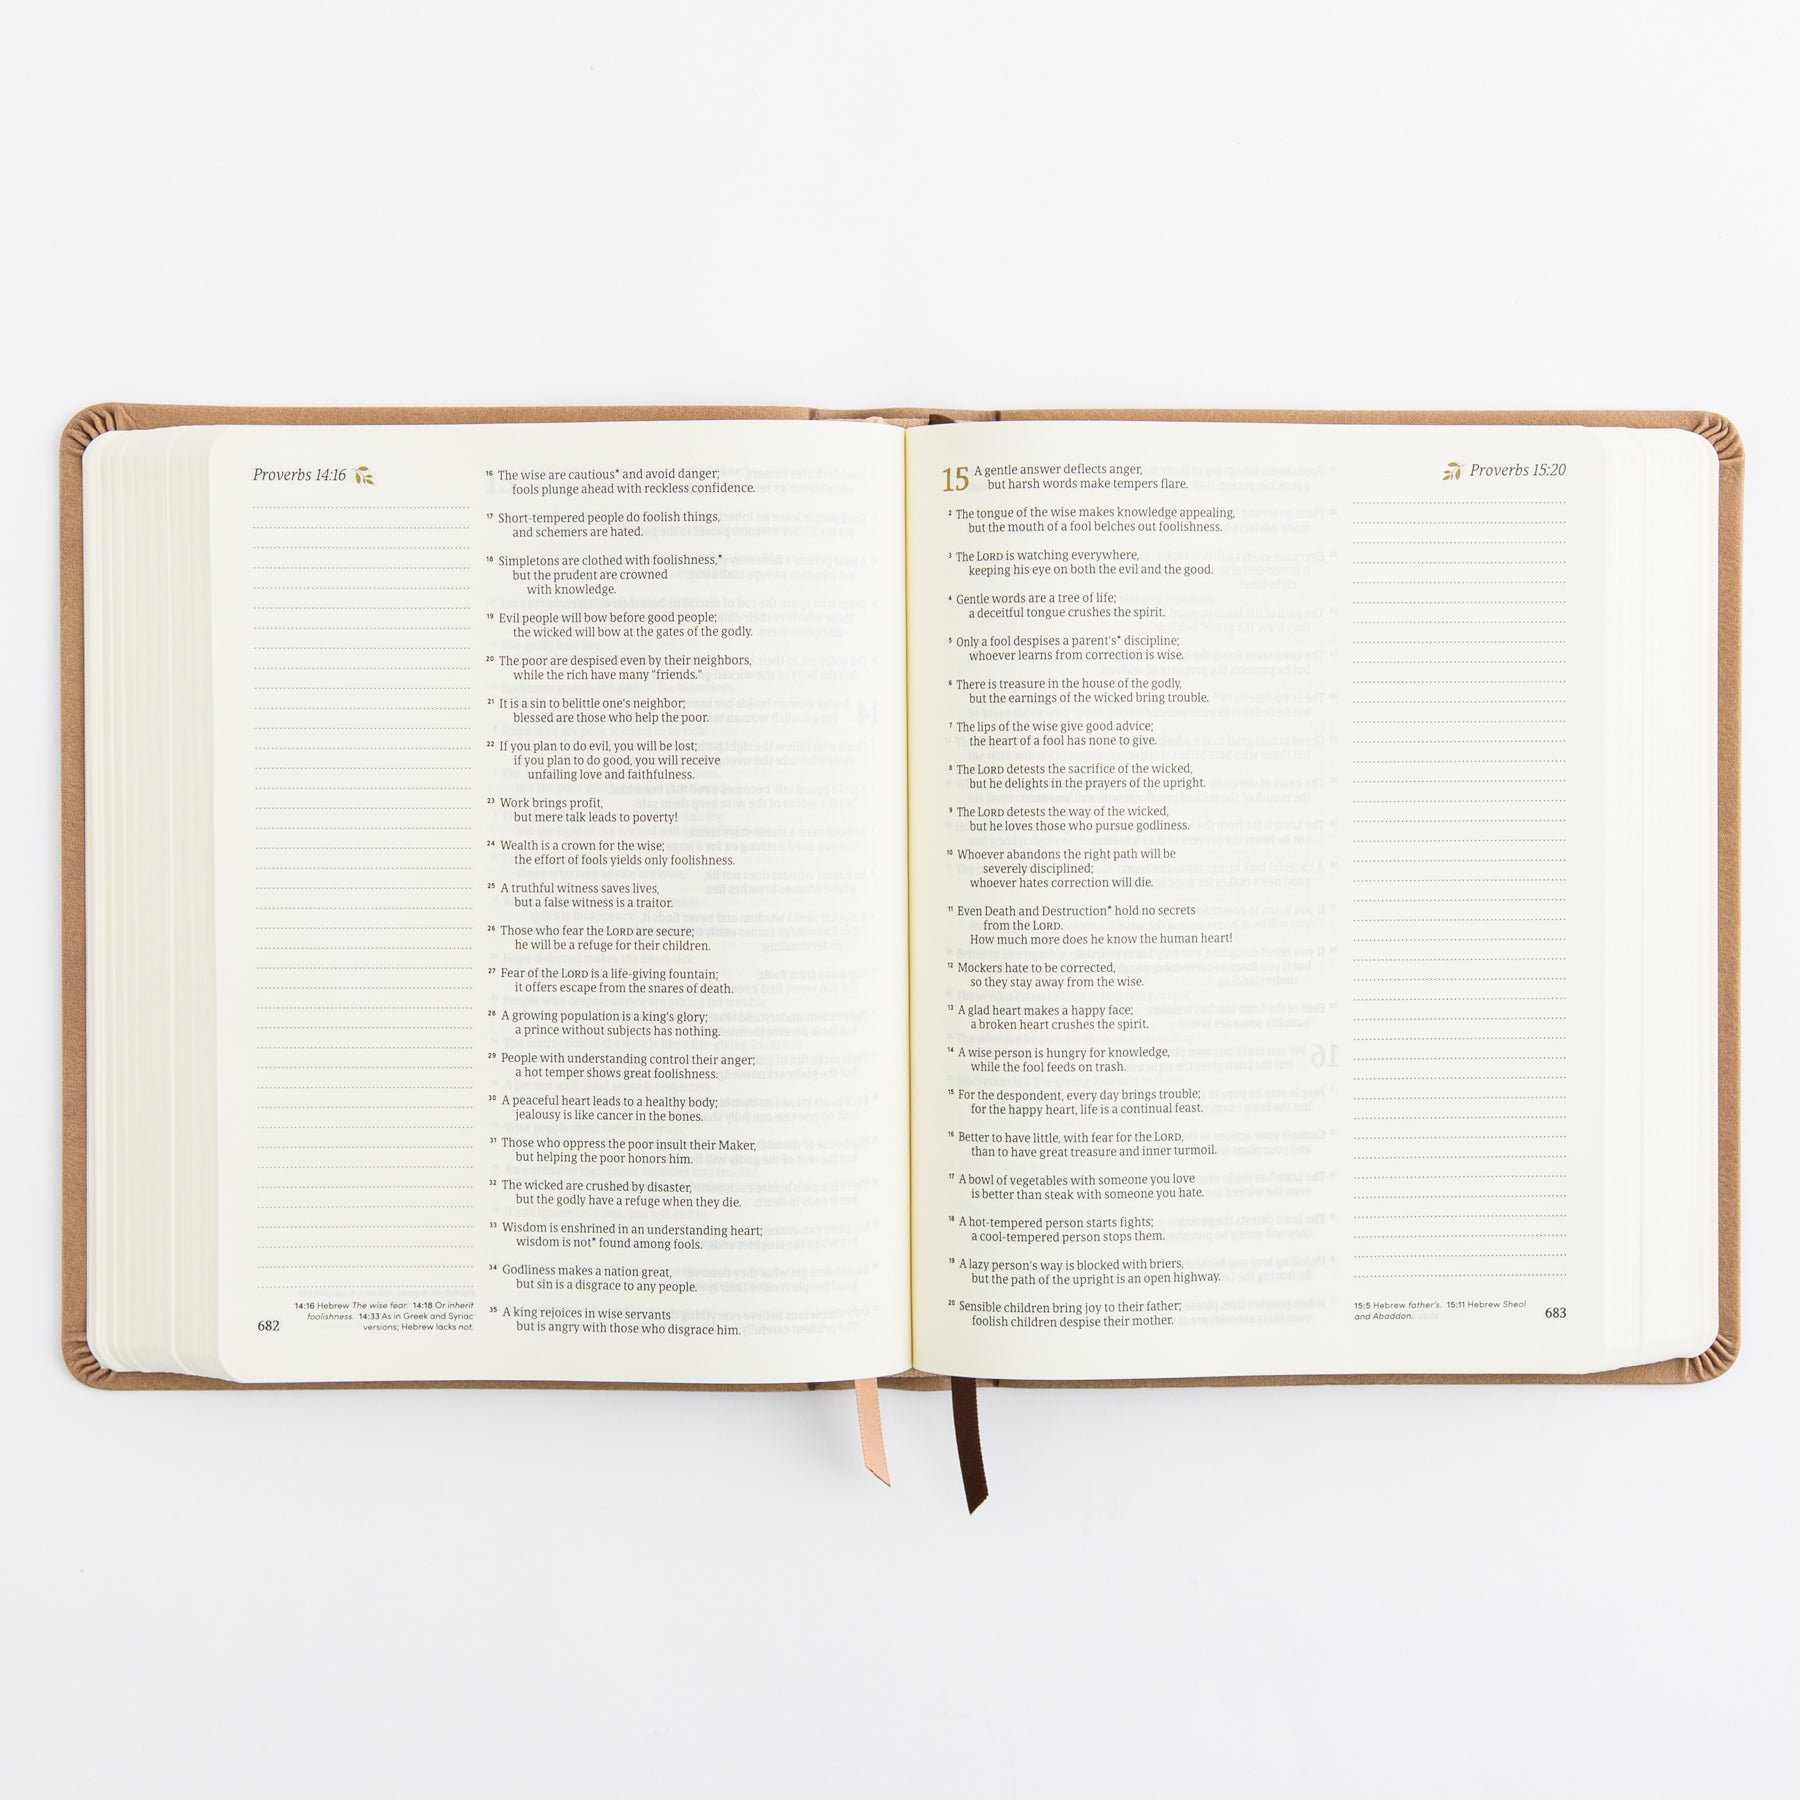 Proverbs 14:16
16 The wise are cautious* and avoid danger;
fools plunge ahead with reckless confidence.
17 Short-tempered people do foolish things,
and schemers are hated.
18 Simpletons are clothed with foolishness,*
but the prudent are crowned
with knowledge.
19 Evil people will bow before good people;
the wicked will bow at the gates of the godly.
20 The poor are despised even by their neighbors,
while the rich have many "friends."
21 It is a sin to belittle one's neighbor;
blessed are those who help the poor.
22 If you plan to do evil, you will be lost;
if you plan to do good, you will receive
unfailing love and faithfulness.
23 Work brings profit,
but mere talk leads to poverty!
24 Wealth is a crown for the wise;
the effort of fools yields only foolishness.
25 A truthful witness saves lives,
but a false witness is a traitor.
26 Those who fear the LORD are secure;
he will be a refuge for their children.
27 Fear of the LORD is a life-giving fountain;
it offers escape from the snares of death.
28 A growing population is a king's glory;
a prince without subjects has nothing.
29 People with understanding control their anger;
a hot temper shows great foolishness.
30 A peaceful heart leads to a healthy body;
jealousy is like cancer in the bones.
31 Those who oppress the poor insult their Maker,
but helping the poor honors him.
32 The wicked are crushed by disaster,
but the godly have a refuge when they die.
33 Wisdom is enshrined in an understanding heart;
wisdom is not* found among fools.
34 Godliness makes a nation great,
but sin is a disgrace to any people.
35 A king rejoices in wise servants
but is angry with those who disgrace him.
14:16 Hebrew The wise fear. 14:18 Or inherit
foolishness. 14:33 As in Greek and Syriac
versions; Hebrew lacks not.
682
Proverbs 15:20
15 A gentle answer deflects anger,
but harsh words make tempers flare.
2 The tongue of the wise makes knowledge appealing,
but the mouth of a fool belches out foolishness.
3 The LORD is watching everywhere,
keeping his eye on both the evil and the good.
4 Gentle words are a tree of life;
a deceitful tongue crushes the spirit.
5 Only a fool despises a parent's* discipline;
whoever learns from correction is wise.
6 There is treasure in the house of the godly,
but the earnings of the wicked bring trouble.
7 The lips of the wise give good advice;
the heart of a fool has none to give.
8 The LORD detests the sacrifice of the wicked,
but he delights in the prayers of the upright.
9 The LORD detests the way of the wicked,
but he loves those who pursue godliness.
10 Whoever abandons the right path will be
severely disciplined;
whoever hates correction will die.
11 Even Death and Destruction* hold no secrets
from the LORD.
How much more does he know the human heart!
12 Mockers hate to be corrected,
so they stay away from the wise.
13 A glad heart makes a happy face;
a broken heart crushes the spirit.
14 A wise person is hungry for knowledge,
while the fool feeds on trash.
15 For the despondent, every day brings trouble;
for the happy heart, life is a continual feast.
16 Better to have little, with fear for the LORD,
than to have great treasure and inner turmoil.
17 A bowl of vegetables with someone you love
is better than steak with someone you hate.
18 A hot-tempered person starts fights;
a cool-tempered person stops them.
19 A lazy person's way is blocked with briers,
but the path of the upright is an open highway.
20 Sensible children bring joy to their father;
foolish children despise their mother.
15:5 Hebrew father's. 15:11 Hebrew Sheol
and Abaddon.
683